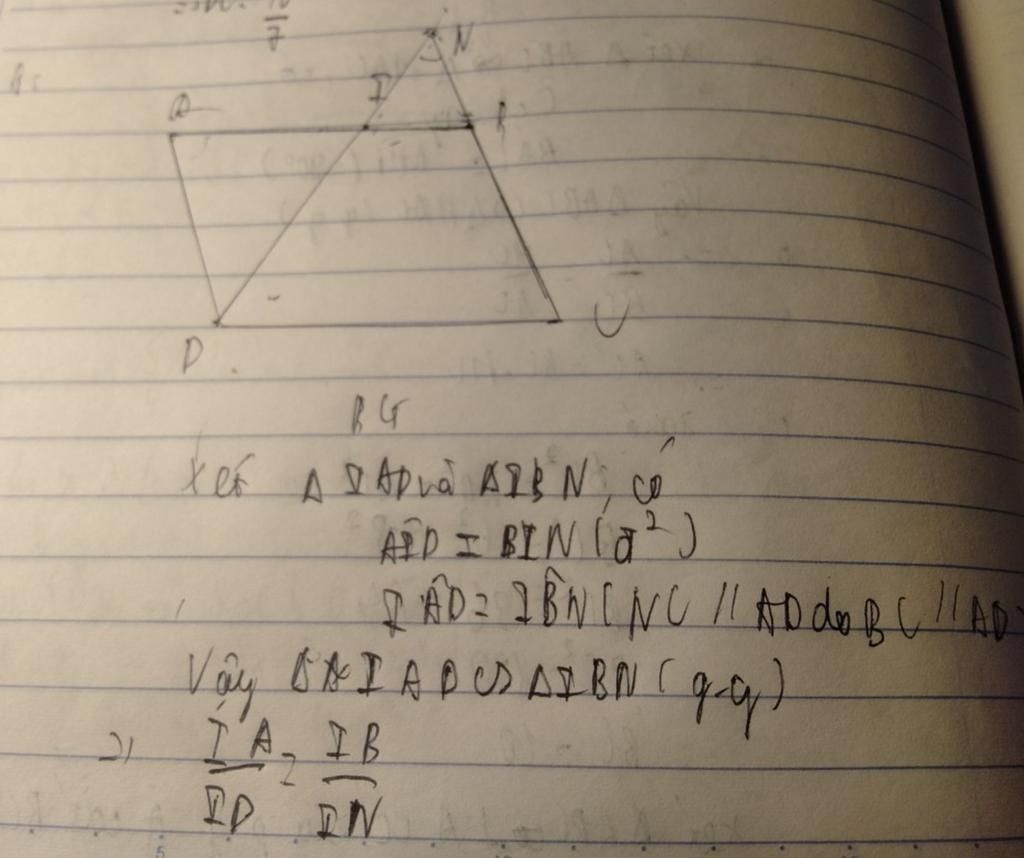 N
I
A
B
D
C
BG
Xét Δ IAD và ΔIBN, có
AÎD = BIN (đ²)
IÂD = IB̂N (NC // AD do BC // AD
Vậy Δ IAD ∽ ΔIBN (g-g)
=> IA/ID = IB/IN